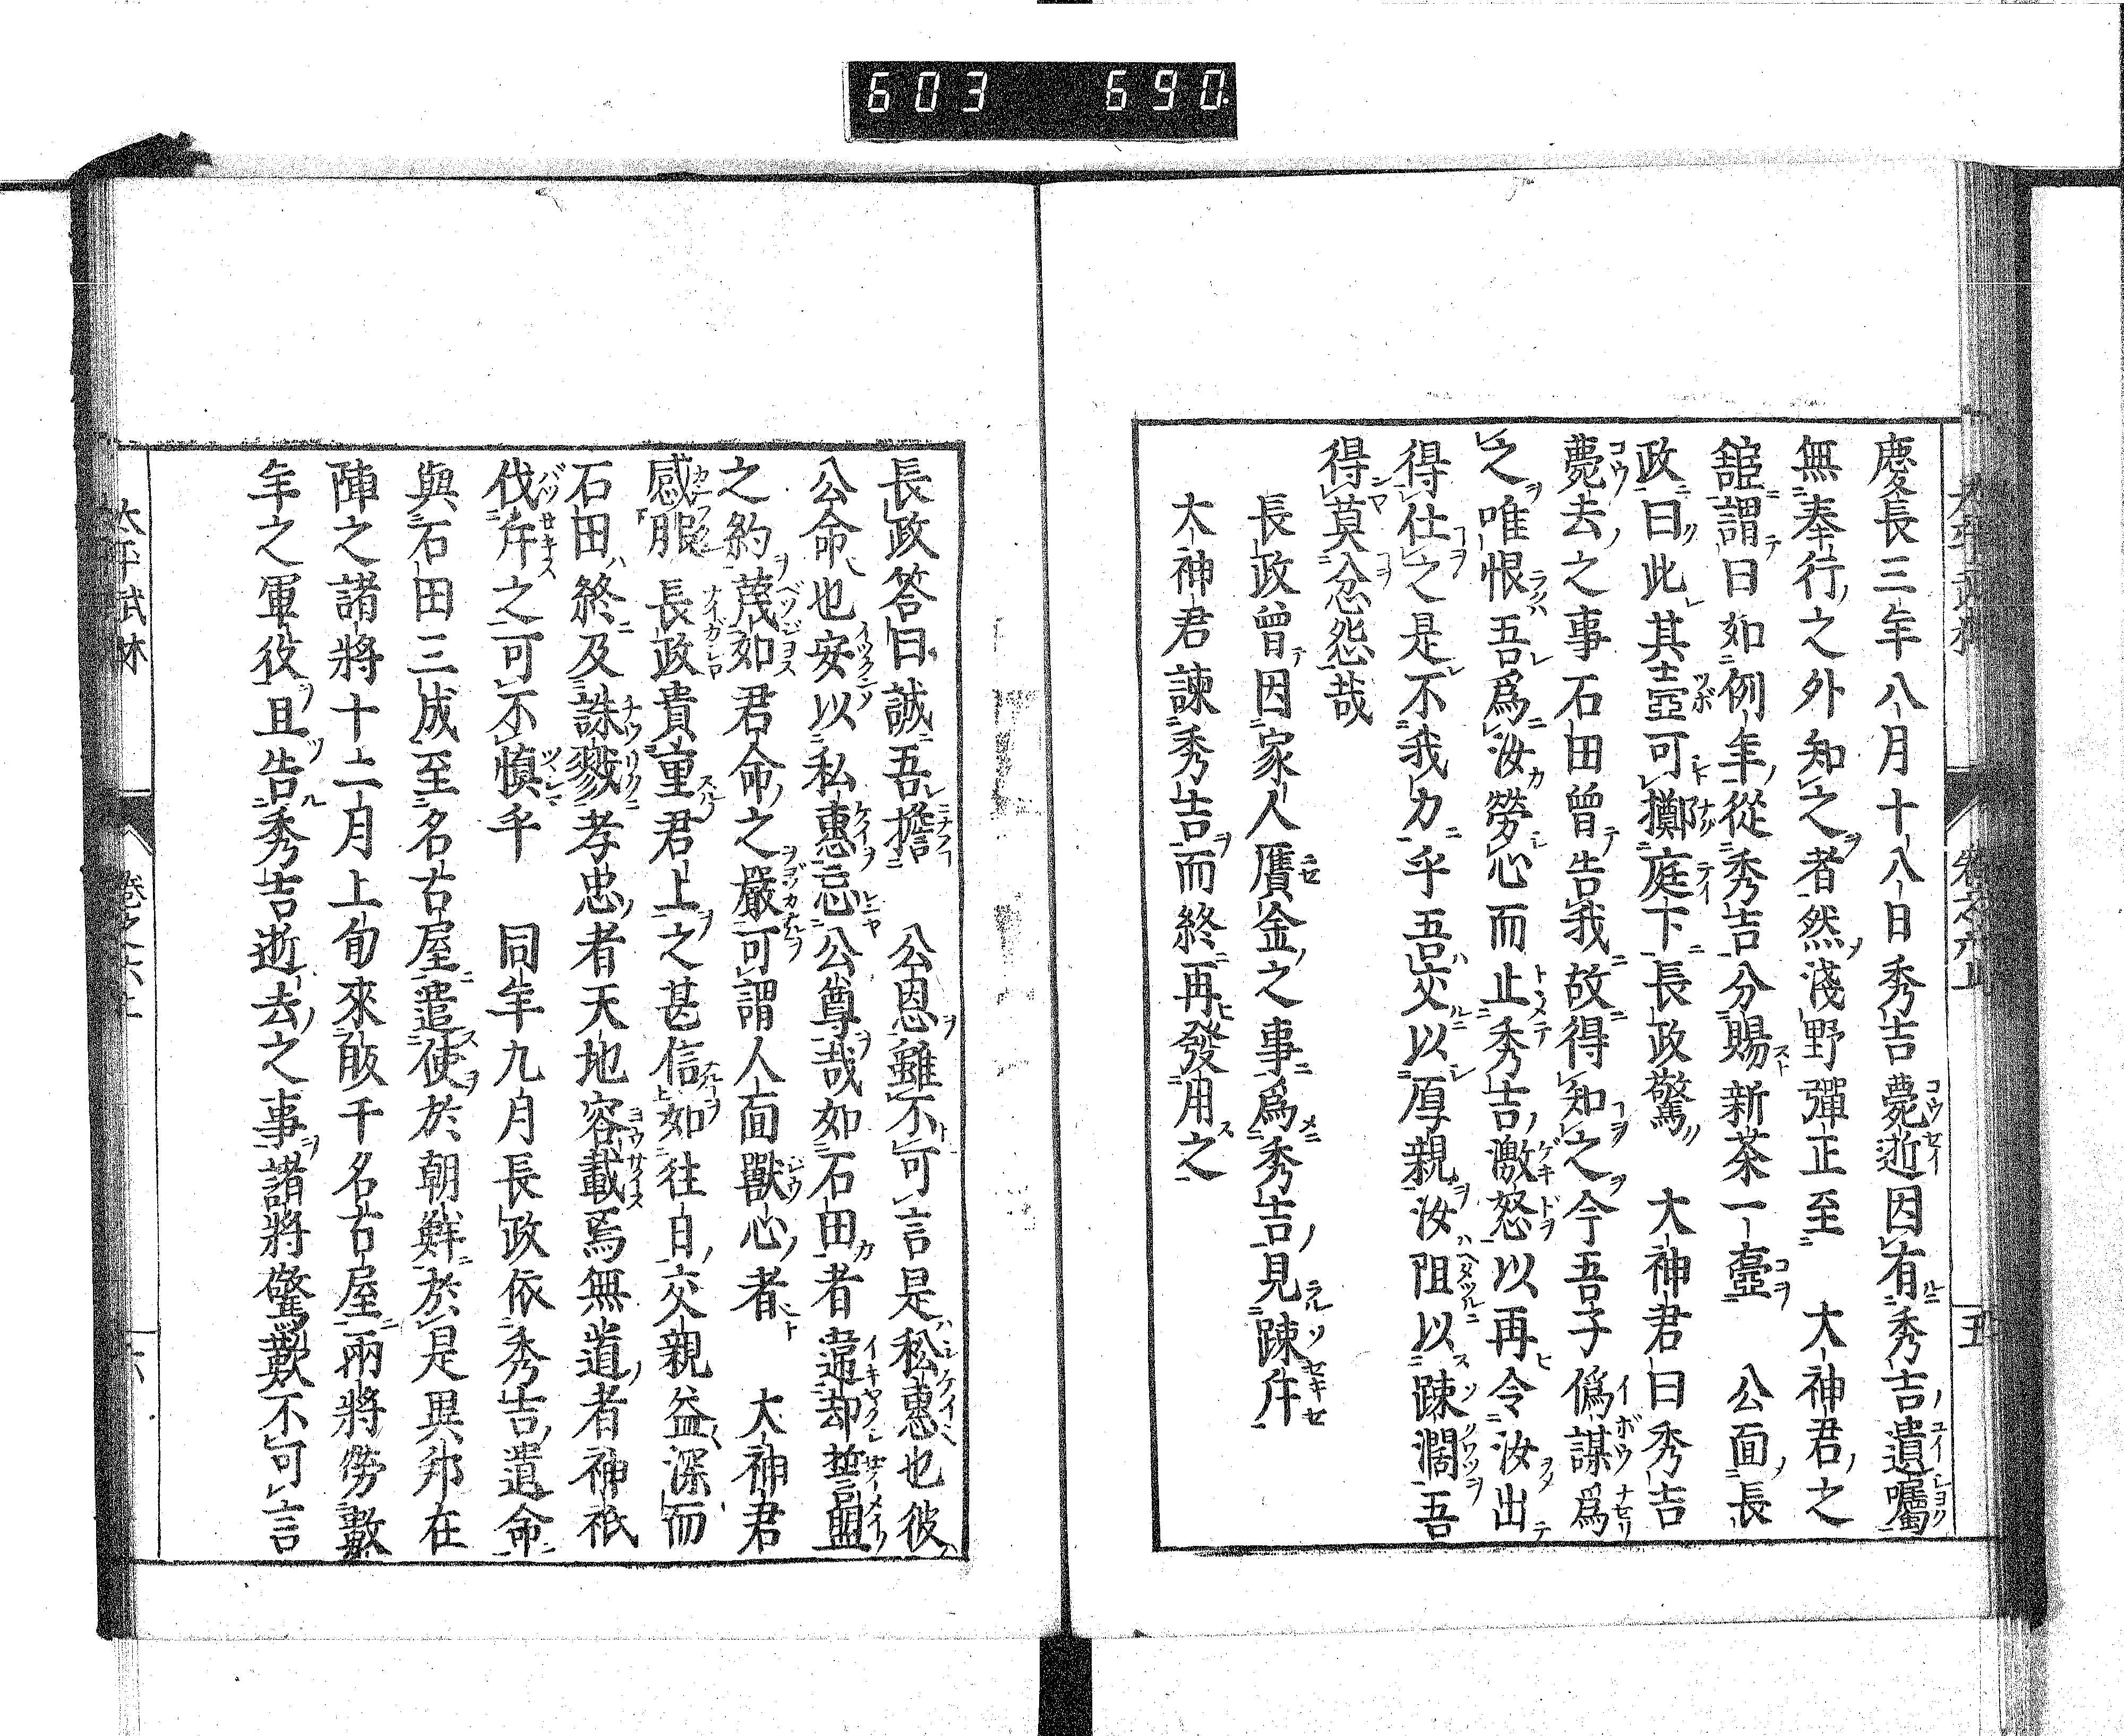 603 690
慶長三年八月十八日秀吉薨逝因有秀吉遺囑
無奉行之外知之者然淺野彈正至 大神君之
舘謂曰如例年從秀吉分賜新茶一壷 公面長
政曰此其壷可擲庭下長政驚 大神君曰秀吉
薨去之事石田曾告我故得知之今吾子僞謀爲
之唯恨吾爲汝勞心而止秀吉激怒以再令汝出
得仕之是不我力乎吾交以厚親汝阻以踈濶吾
得莫忿怨哉
長政曾因家人贋金之事爲秀吉見踈斥
大神君諫秀吉而終再發用之
長政答曰誠吾擔 公恩雖不可言是私惠也彼
公命也安以私惠忘公尊哉如石田者違却誓盟
之約蔑如君命之嚴可謂人面獸心者 大神君
感服 長政貴重君上之甚信如往日交親益深而
石田終及誅戮孝忠者天地容載焉無道者神祇
伐斥之可不愼乎 同年九月長政依秀吉遺命
與石田三成至名古屋遣使於朝鮮於是異邦在
陣之諸將十二月上旬來皈于名古屋兩將勞數
年之軍役且告秀吉逝去之事諸將驚歎不可言
太平武林 卷之六上 六